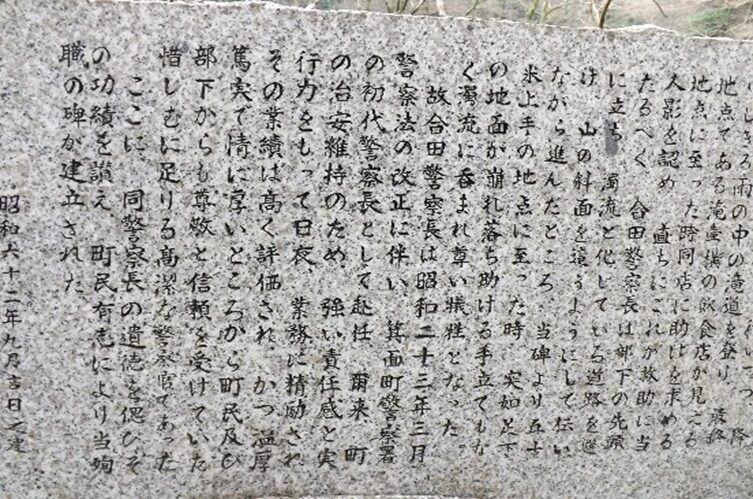 しきる雨の中の滝道を登り 最終
地点である滝壺横の飲食店が見える
地点に至った時同店に助けを求める
人影を認め 直ちにこれが救助に当
たるべく 合田警察長は部下の先頭
に立ち 濁流と化している道路を避
け 山の斜面を這うようにして伝い
ながら進んだところ 当碑より五十
米上手の地点に至った時 突如足下
の地面が崩れ落ち助ける手立てもな
く濁流に呑まれ尊い犠牲となった。
故合田警察長は昭和二十三年三月
警察法の改正に伴い 箕面町警察署
の初代警察長として赴任 爾来 町
の治安維持のため、強い責任感と実
行力をもって日夜、業務に精励され
その業績は高く評価され、かつ温厚
篤実で情に厚いところから町民及び
部下からも尊敬と信頼を受けていた
惜しむに足りる高潔な警察官であった
ここに、同警察長の遺徳を偲びそ
の功績を讃え 町民有志により当殉
職の碑が建立された
昭和六十二年九月吉日之建